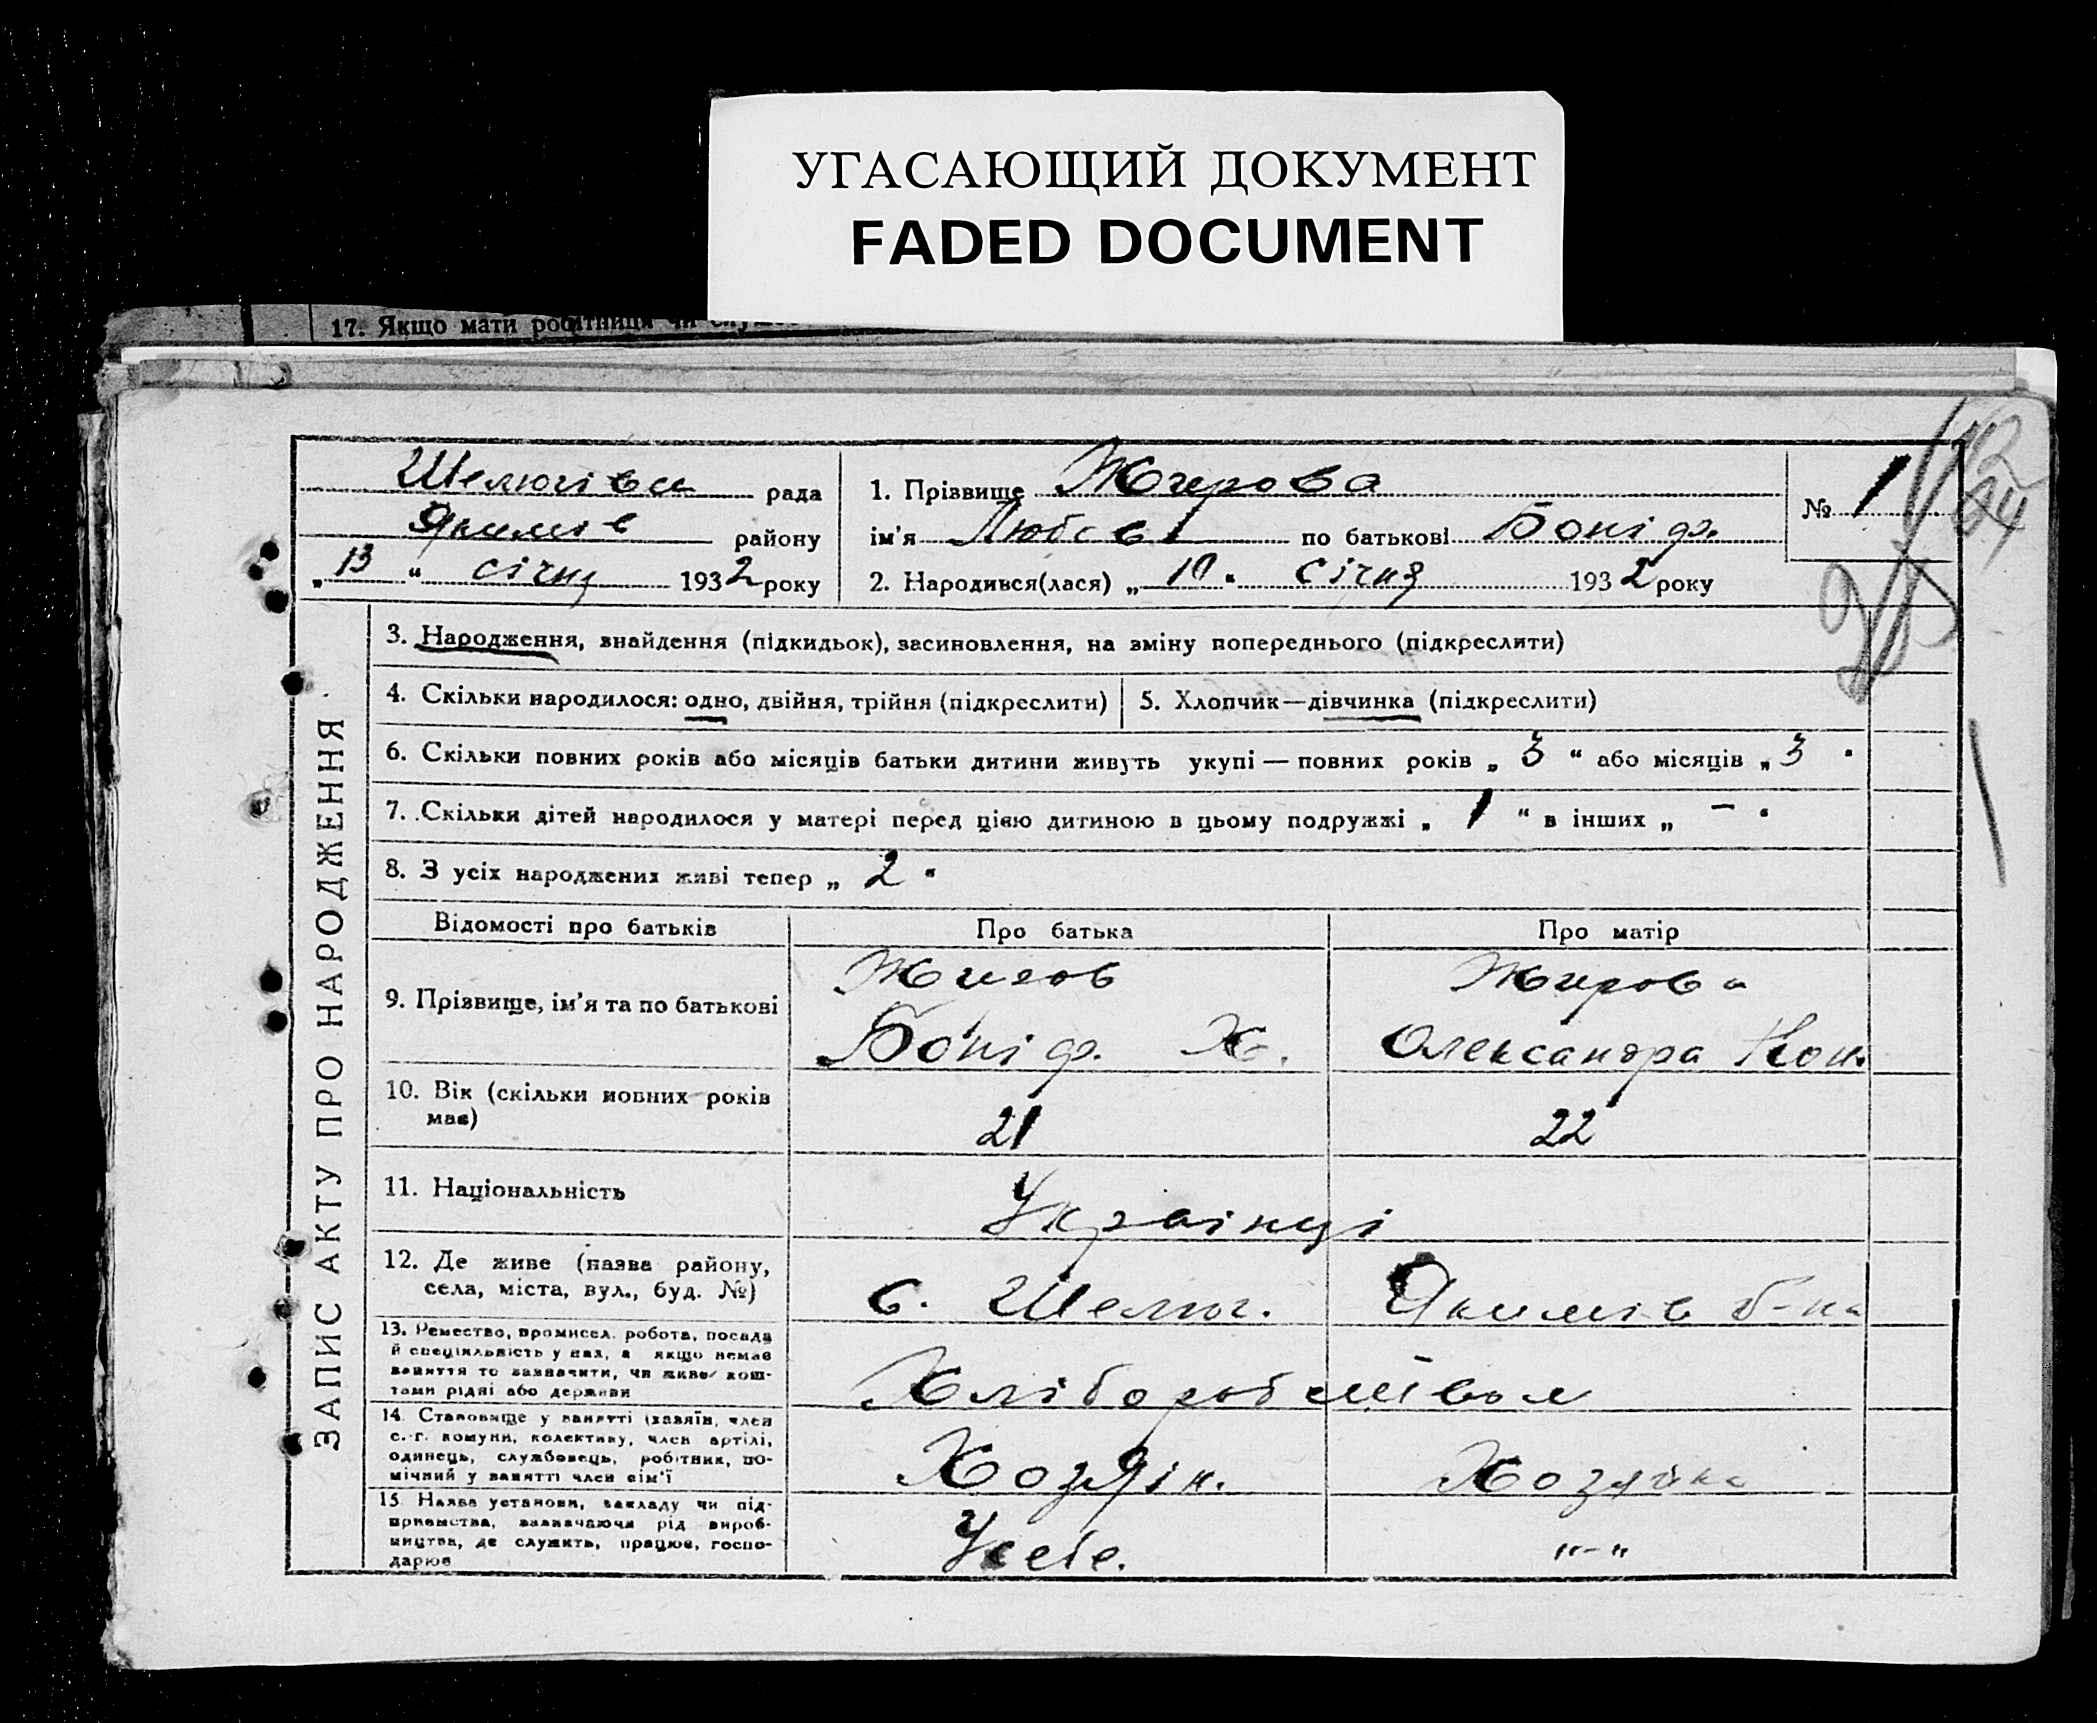 УГАСАЮЩИЙ ДОКУМЕНТ
FADED DOCUMENT
17. Якщо мати робітниця чи
Шелюгівск рада
Якимів району
„13“ січня 1932 року
1. Прізвище Жгирова
ім'я Любов по батькові Боніф.
2. Народився(лася) „10“ січня 1932 року
№ 1
ЗАПИС АКТУ ПРО НАРОДЖЕННЯ
3. Народження, знайдення (підкидьок), засиновлення, на зміну попереднього (підкреслити)
4. Скільки народилося: одно, двійня, трійня (підкреслити)
5. Хлопчик—дівчинка (підкреслити)
6. Скільки повних років або місяців батьки дитини живуть укупі — повних років „3“ або місяців „3“
7. Скільки дітей народилося у матері перед цією дитиною в цьому подружжі „1“ в інших „—“
8. З усіх народжених живі тепер „2“
Відомості про батьків
Про батька
Про матір
9. Прізвище, ім'я та по батькові
Боніф. Х.
Жгирова
Олександра Кон.
10. Вік (скільки повних років
має)
21
22
11. Національність
Українці
12. Де живе (назва району,
села, міста, вул., буд. №)
с. Шелюг.
Якимів
13. Ремество, промисел. робота, посада
й спеціяльність у них, а якщо немає
заняття то зазначити, чи живе кош-
тами рідні або держави
Хліборобством
14. Становище у занятті (хазяїн, член
с.-г. комуни, колективу, член артілі,
одинець, службовець, робітник, по-
мічний у занятті член сім'ї
Хозяїн.
Хозяйка
15. Назва установи, закладу чи під-
приємства, зазначаючи рід вироб-
ництва, де служить, працює, госпо-
дарює
У себе.
"-"